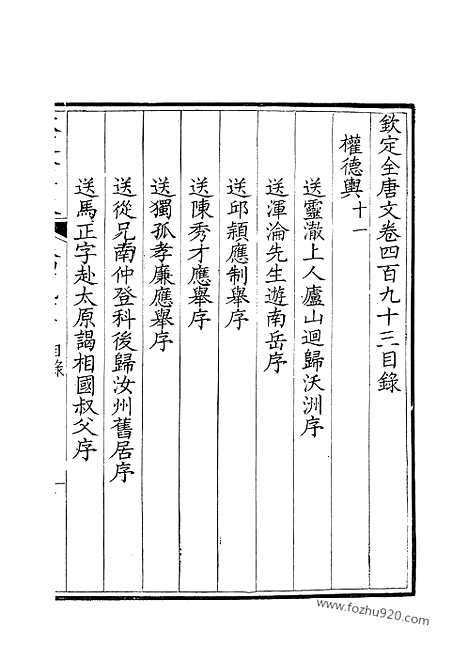 欽定全唐文卷四百九十三目錄
權德輿十一
送靈澈上人廬山迴歸沃洲序
送渾淪先生遊南岳序
送邱頴應制舉序
送陳秀才應舉序
送獨孤孝廉應舉序
送從兄南仲登科後歸汝州舊居序
送馬正字赴太原謁相國叔父序
目錄
一
www.fozhu920.com